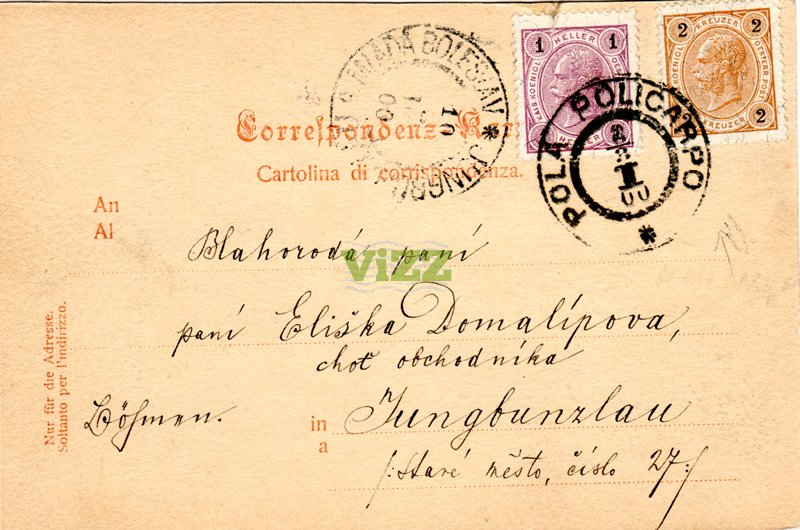 1 HELLER 1
KAIS. KOENIGL. OESTERR. POST.
HELLER
2 KREUZER 2
KAIS. KOENIGL. OESTERR. POST.
KREUZER 2
MLADÁ BOLESLAV * JUNGBU
10
1
00
POLA POLICARPO
I
00
*
Correspondenz-Kar
Cartolina di corrispondenza.
An
Al
Blahorodá paní
ViZZ
paní Eliška Domalípova,
choť obchodníka
Böhmen.
in
a
Jungbunzlau
/: Staré město, číslo 27 :/
Nur für die Adresse.
Soltanto per l'indirizzo.